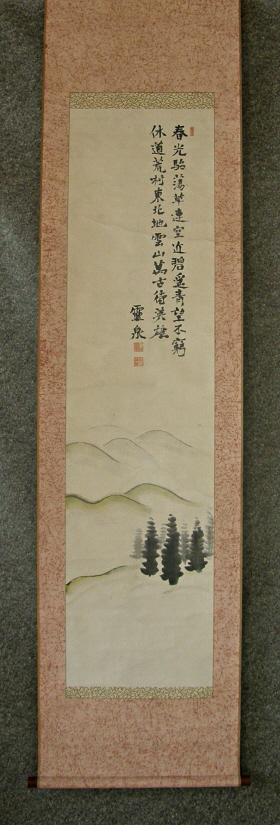 春光駘蕩草連空近碧遠青望不窮
休道荒村東北地雲山萬古待英雄
靈泉